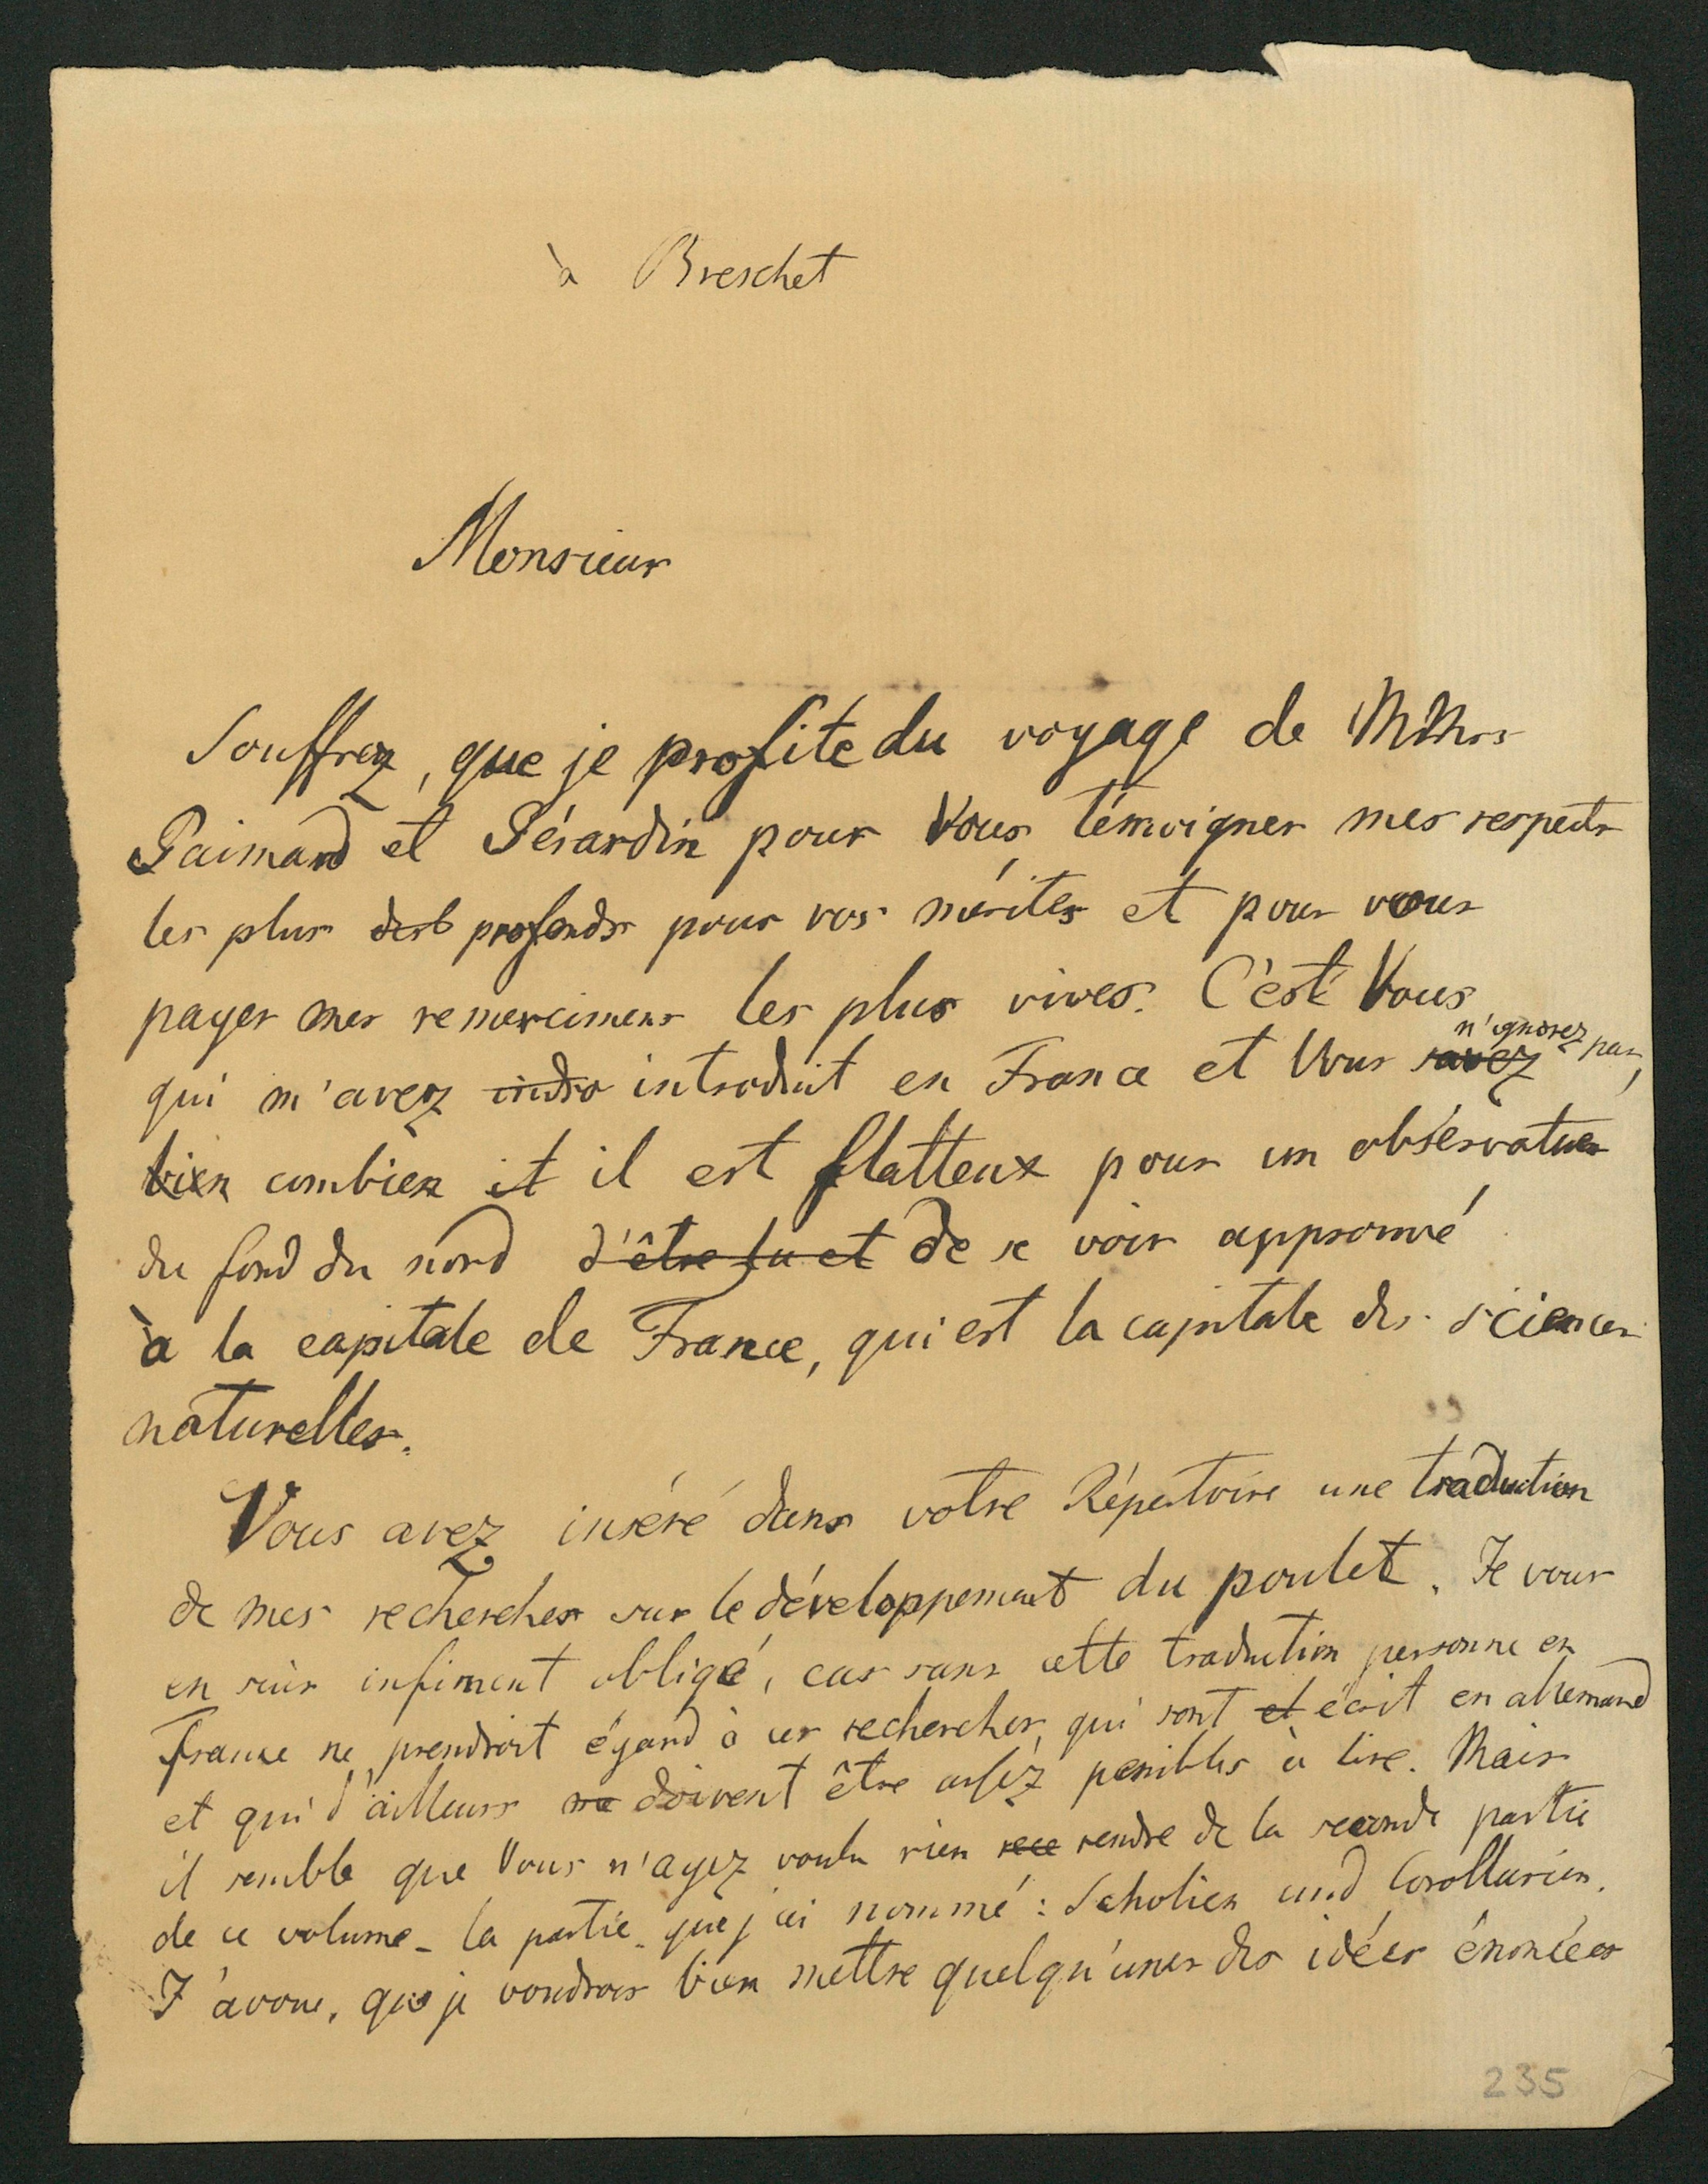 à Breschet
Monsieur
Souffrez, que je profite du voyage de MMrs
Gaimard et Gérardin pour Vous témoigner mes respects
les plus profonds pour vos mérites et pour vous
payer mes remercimens les plus vives. C'est Vous
n'ignorez pas,
qui m'avez indro introduit en France et Vous savez
bien combien it il est flatteux pour un observateur
du fond du nord d'être lu et de se voir approuvé
à la capitale de France, qui est la capitale des sciences
naturelles.
Vous avez inséré dans votre Répertoire une traduction
de mes recherches sur le développement du poulet. Je vous
en suis infiment obligé, car sans cette traduction personne en
France ne prendroit égard à ces recherches, qui sont et écrit en allemand
et qui d'ailleurs ne doivent être assez penibles à lire. Mais
il semble que Vous n'ayez voulu rien rece rendre de la seconde partie
de ce volume - la partie que j'ai nommé: Scholien und Corollarien.
J'avoue, que je voudrois bien mettre quelqu'unes des idées énoncées
235